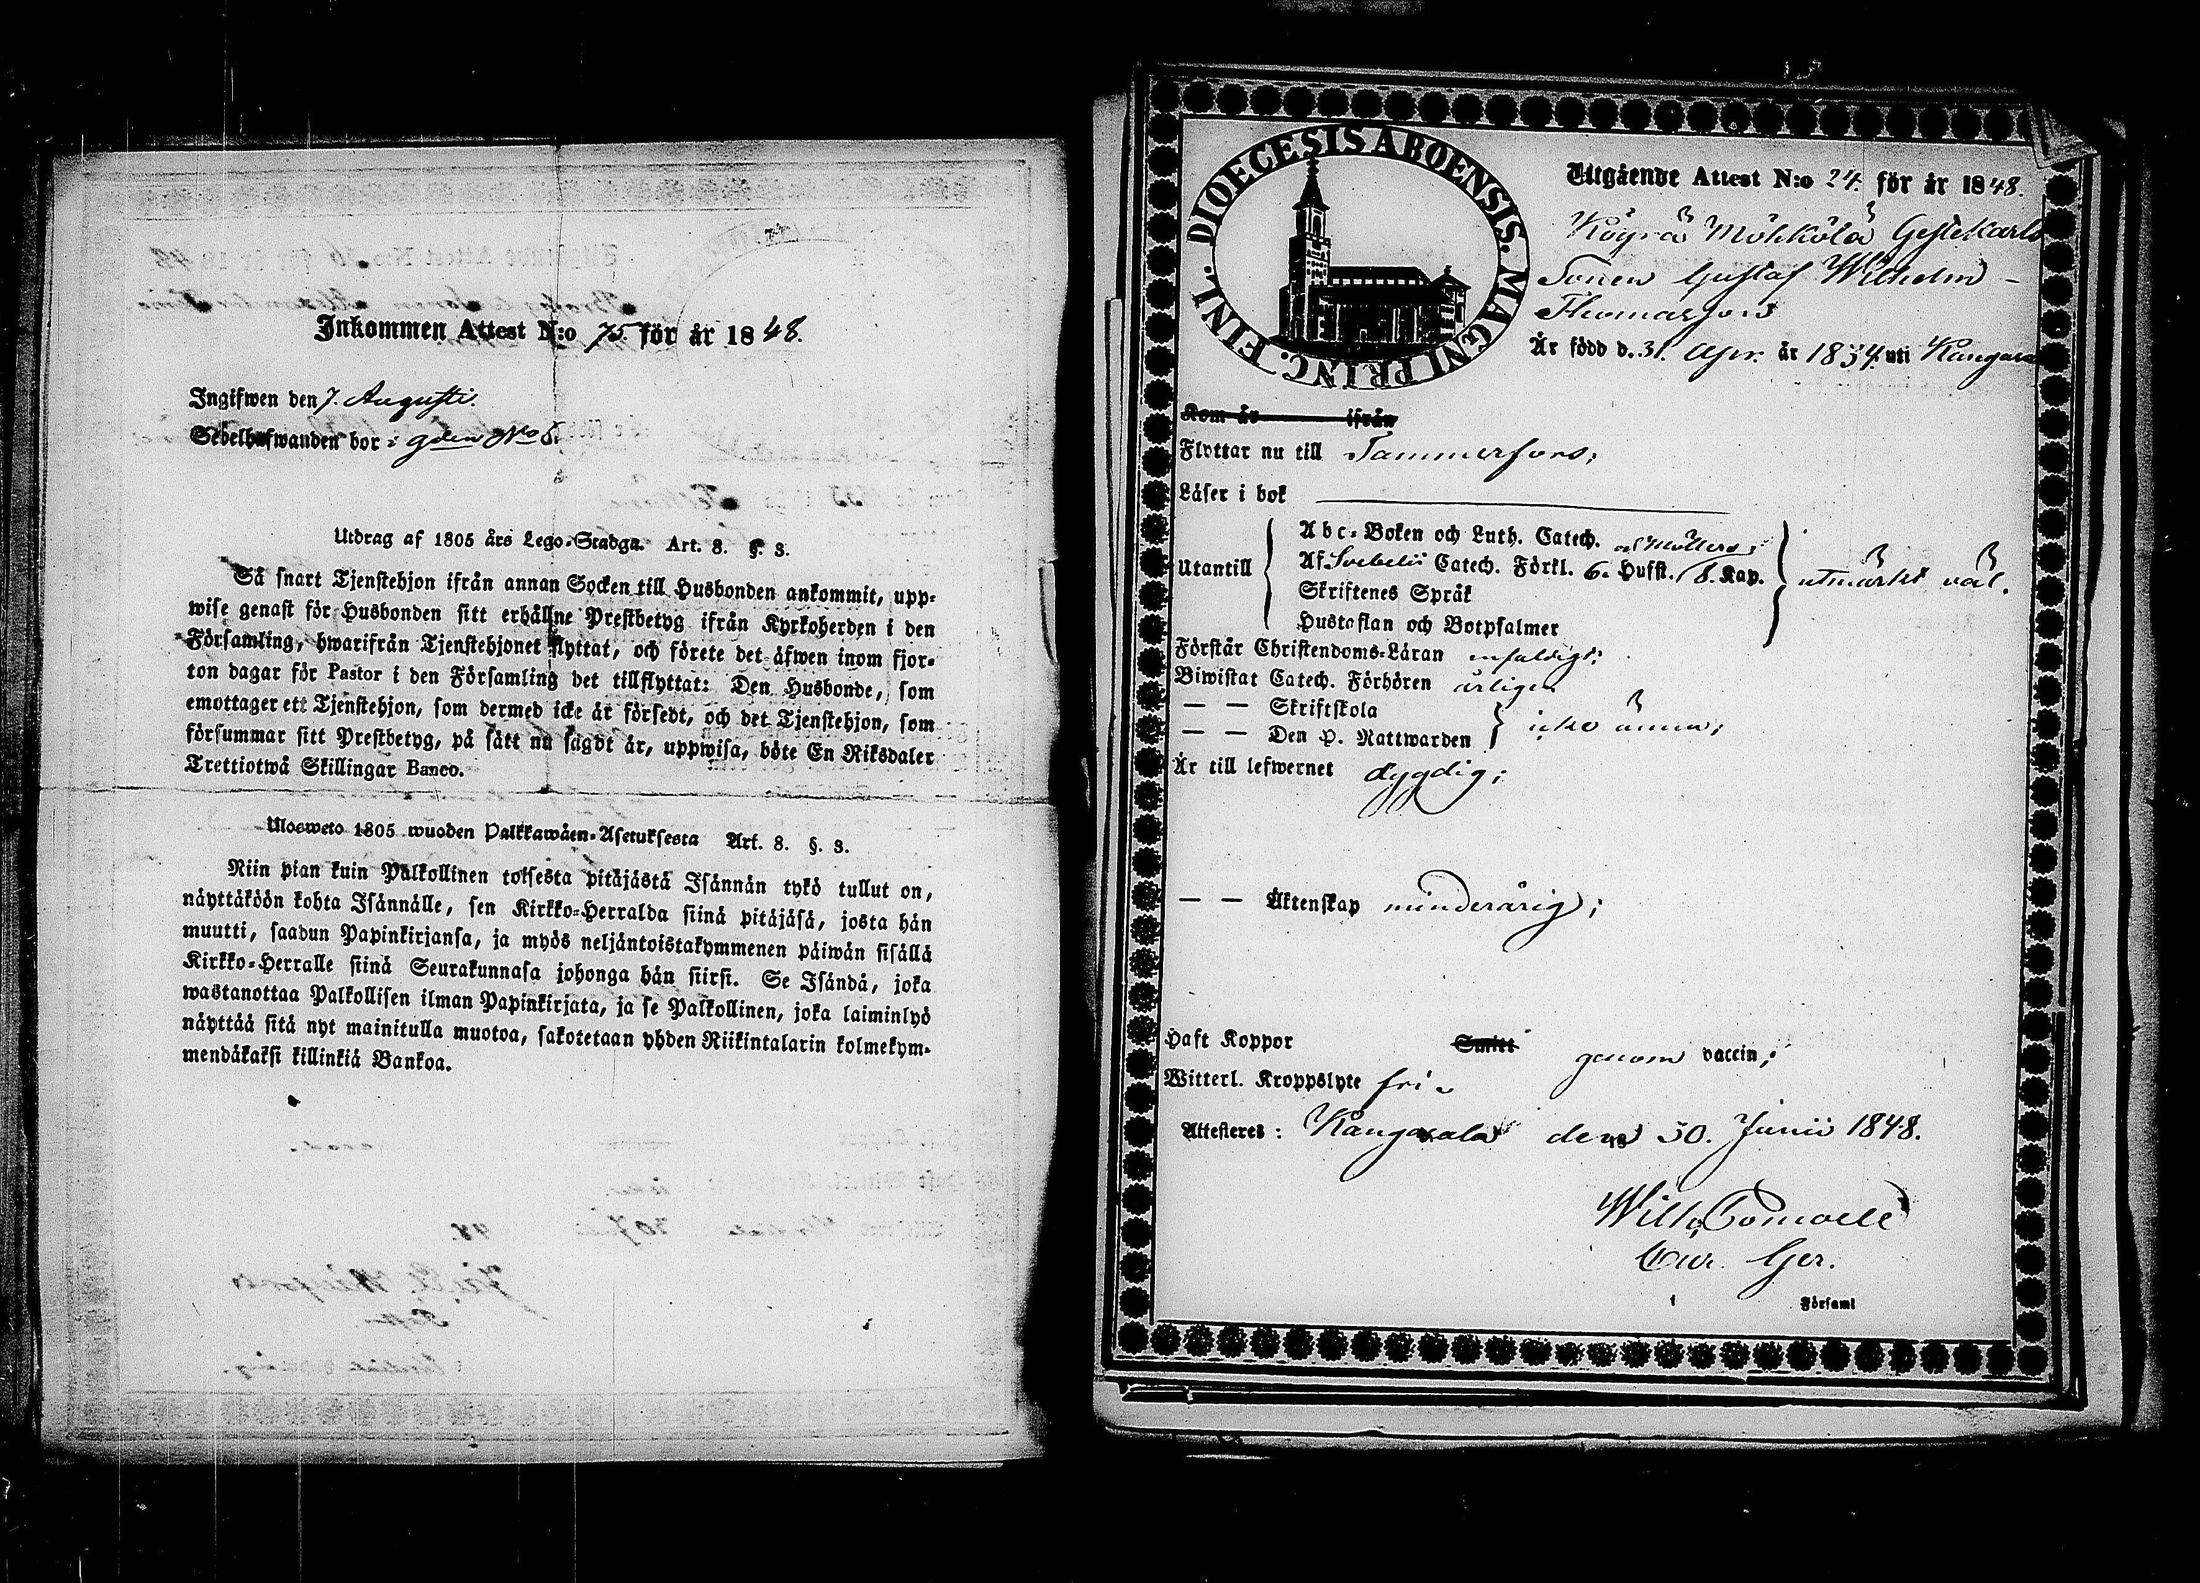 Inkommen Attest N:o 75. för år 1848.
Ingifwen den 7. Augusti.
Sedelhafwanden bor i gden No 5.
Utdrag af 1805 års Lego-Stadga. Art. 8. §. 3.
Så snart Tjenstehjon ifrån annan Socken till Husbonden ankommit, upp-
wise genast för Husbonden sitt erhållne Prestbetyg ifrån Kyrkoherden i den
Församling, hwarifrån Tjenstehjonet flyttat, och förete det äfwen inom fjor-
ton dagar för Pastor i den Församling det tillflyttat: Den Husbonde, som
emottager ett Tjenstehjon, som dermed icke är försedt, och det Tjenstehjon, som
försummar sitt Prestbetyg, på sätt nu sagdt är, uppwisa, böte En Riksdaler
Trettiotwå Skillingar Banco.
Ulosweto 1805 wuoden Palkkawäen-Asetuksesta Art. 8. §. 3.
Niin pian kuin Palkollinen toisesta pitäjästä Isännän tykö tullut on,
näyttäköön kohta Isännälle, sen Kirkko-Herralda siinä pitäjäsä, josta hän
muutti, saadun Papinkirjansa, ja myös neljäntoistakymmenen päiwän sisällä
Kirkko-Herralle siinä Seurakunnasa johonga hän siirsi. Se Isändä, joka
wastanottaa Palkollisen ilman Papinkirjata, ja se Palkollinen, joka laiminlyö
näyttää sitä nyt mainitulla muotoa, sakotetaan yhden Riikintalarin kolmekym-
mendäkaksi killinkiä Bankoa.
DIOECESIS ABOENSIS. MAGNI PRINC. FINL.
Utgående Attest N:o 24. för år 1848.
Köyrä Mökkölä Gestekarls
Sonen Gustaf Wilhelm
Thomasson
Är född d. 31. Apr. år 1834. uti Kangasa
Kom år ifrån
Flyttar nu till Tammerfors;
Läser i bok
Abc-Boken och Luth. Catech. o Möllers;
Utantill Af Svebelii Catech. Förkl. 6. Hufst. 8. Kap. utmärkt väl.
Skriftenes Språk
Hustaflan och Botpsalmer
Förstår Christendoms-Läran enfaldigt;
Biwistat Catech. Förhören årligen
— — Skriftskola
— — Den H. Nattwarden icke ännu;
Är till lefwernet dygdig;
— — Äktenskap minderårig;
Haft Koppor Smitt genom vaccin;
Witterl. Kroppslyte fri
Attesteres: Kangasala den 30. Junii 1848.
Wilh.
Cur. Ger.
i Församl